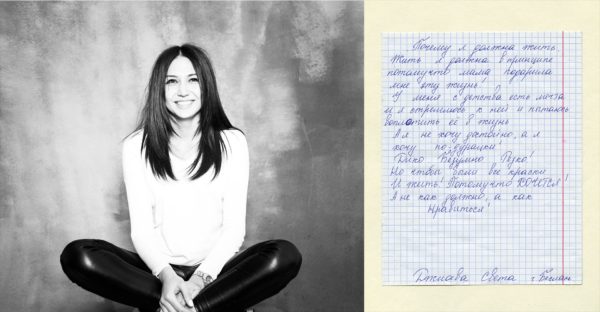 Почему я должна жить
Жить я должна в принципе
потому что мама подарила
мне эту жизнь
У меня с детства есть мечта
и я стремлюсь к ней и пытаюсь
воплотить её в жизнь
А я не хочу достойно, а я
хочу по-дурацки!
Дико Безумно Резко!
Но чтоб были все краски
И жить! Потому что ХОЧЕТСЯ!
А не как должно, а как
нравиться!
Света г. Беслан